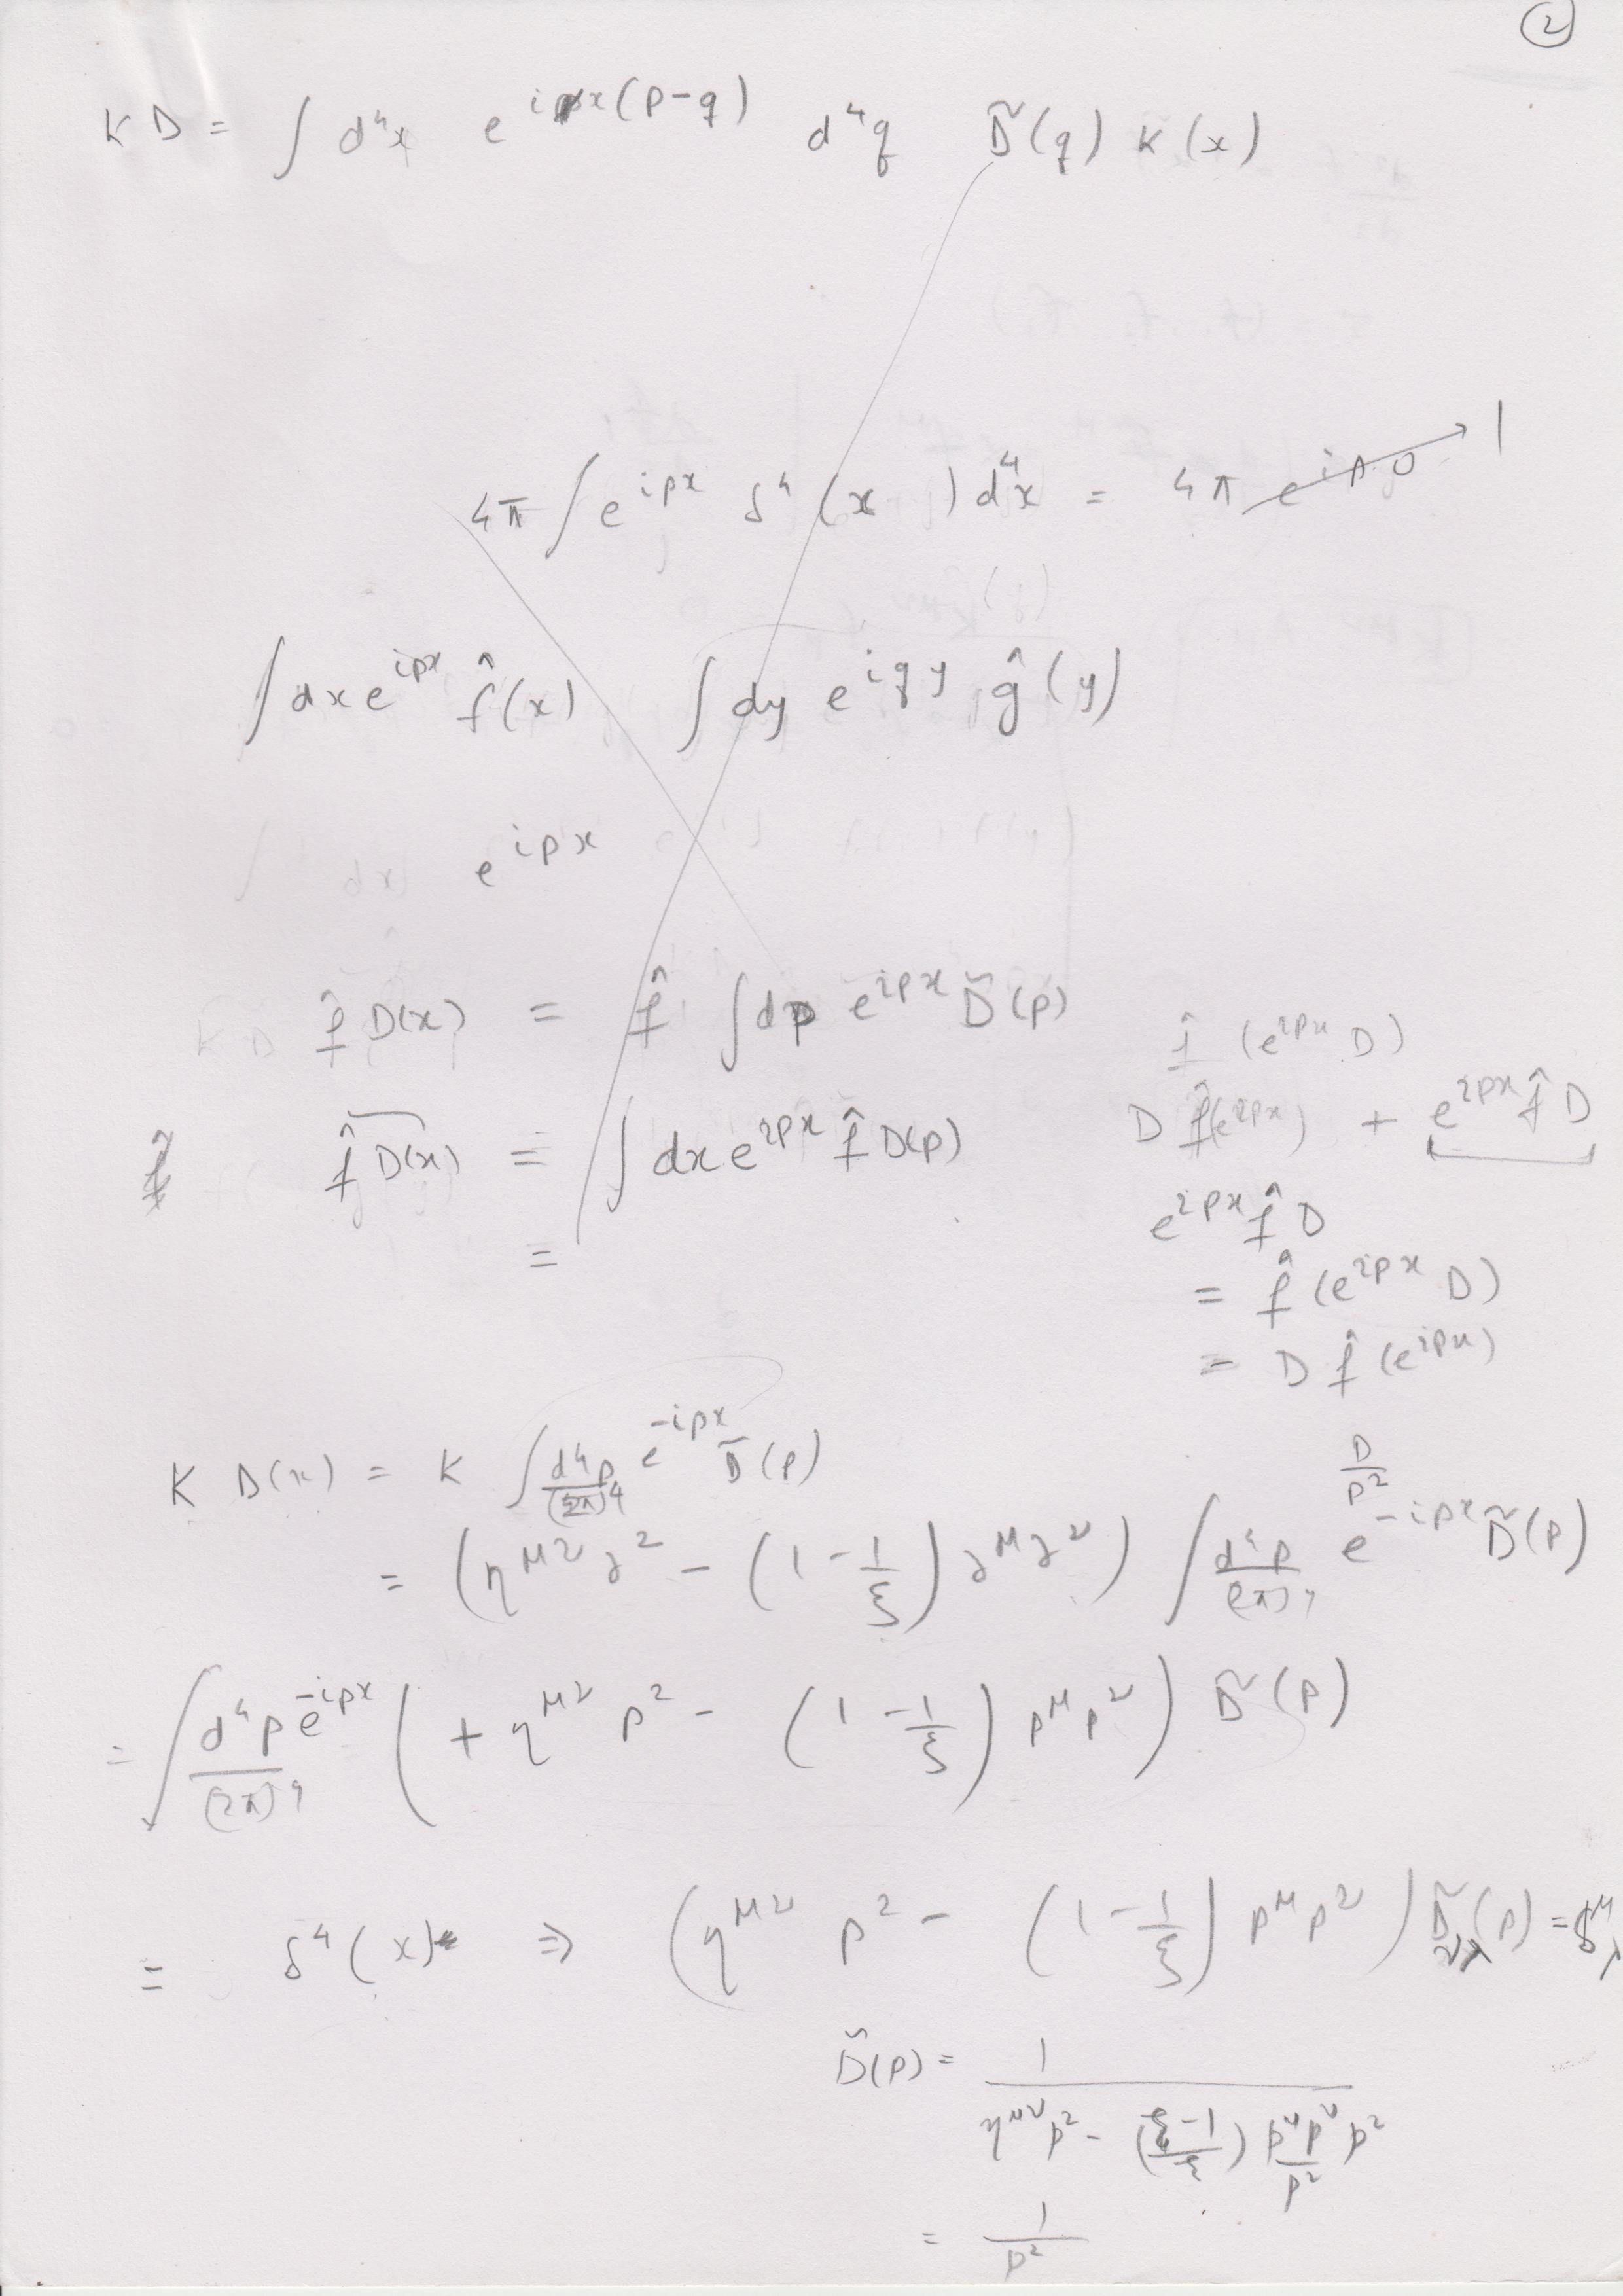 2
K D = ∫ d⁴x e^{ix(p-q)} d⁴q D̃(q) K(x)
4π ∫ e^{ipx} δ⁴(x) d⁴x = 4π e^{ip.0} → 1
∫ dx e^{ipx} f̂(x) ∫ dy e^{iqy} ĝ(y)
e^{ipx}
f̂ D(x) = f̂ ∫ dp e^{ipx} D̃(p)
f̂ (e^{ipx} D)
f̂ D(x) = ∫ dx e^{ipx} f̂ D(p)
D f̂(e^{ipx}) + e^{ipx} f̂ D
=
e^{ipx} f̂ D
= f̂ (e^{ipx} D)
= D f̂ (e^{ipx})
K D(x) = K ∫ d⁴p/(2π)⁴ e^{-ipx} D̃(p)
D/p²
= (η^{μν} ∂² - (1 - 1/ξ) ∂^μ ∂^ν) ∫ d⁴p/(2π)⁴ e^{-ipx} D̃(p)
= ∫ d⁴p/(2π)⁴ e^{-ipx} ( + η^{μν} p² - (1 - 1/ξ) p^μ p^ν ) D̃(p)
= δ⁴(x) ⇒ (η^{μν} p² - (1 - 1/ξ) p^μ p^ν) D̃_{νλ}(p) = δ^μ_λ
D̃(p) = 1/(η^{μν} p² - ((ξ-1)/ξ) (p^μ p^ν/p²) p²)
= 1/p²